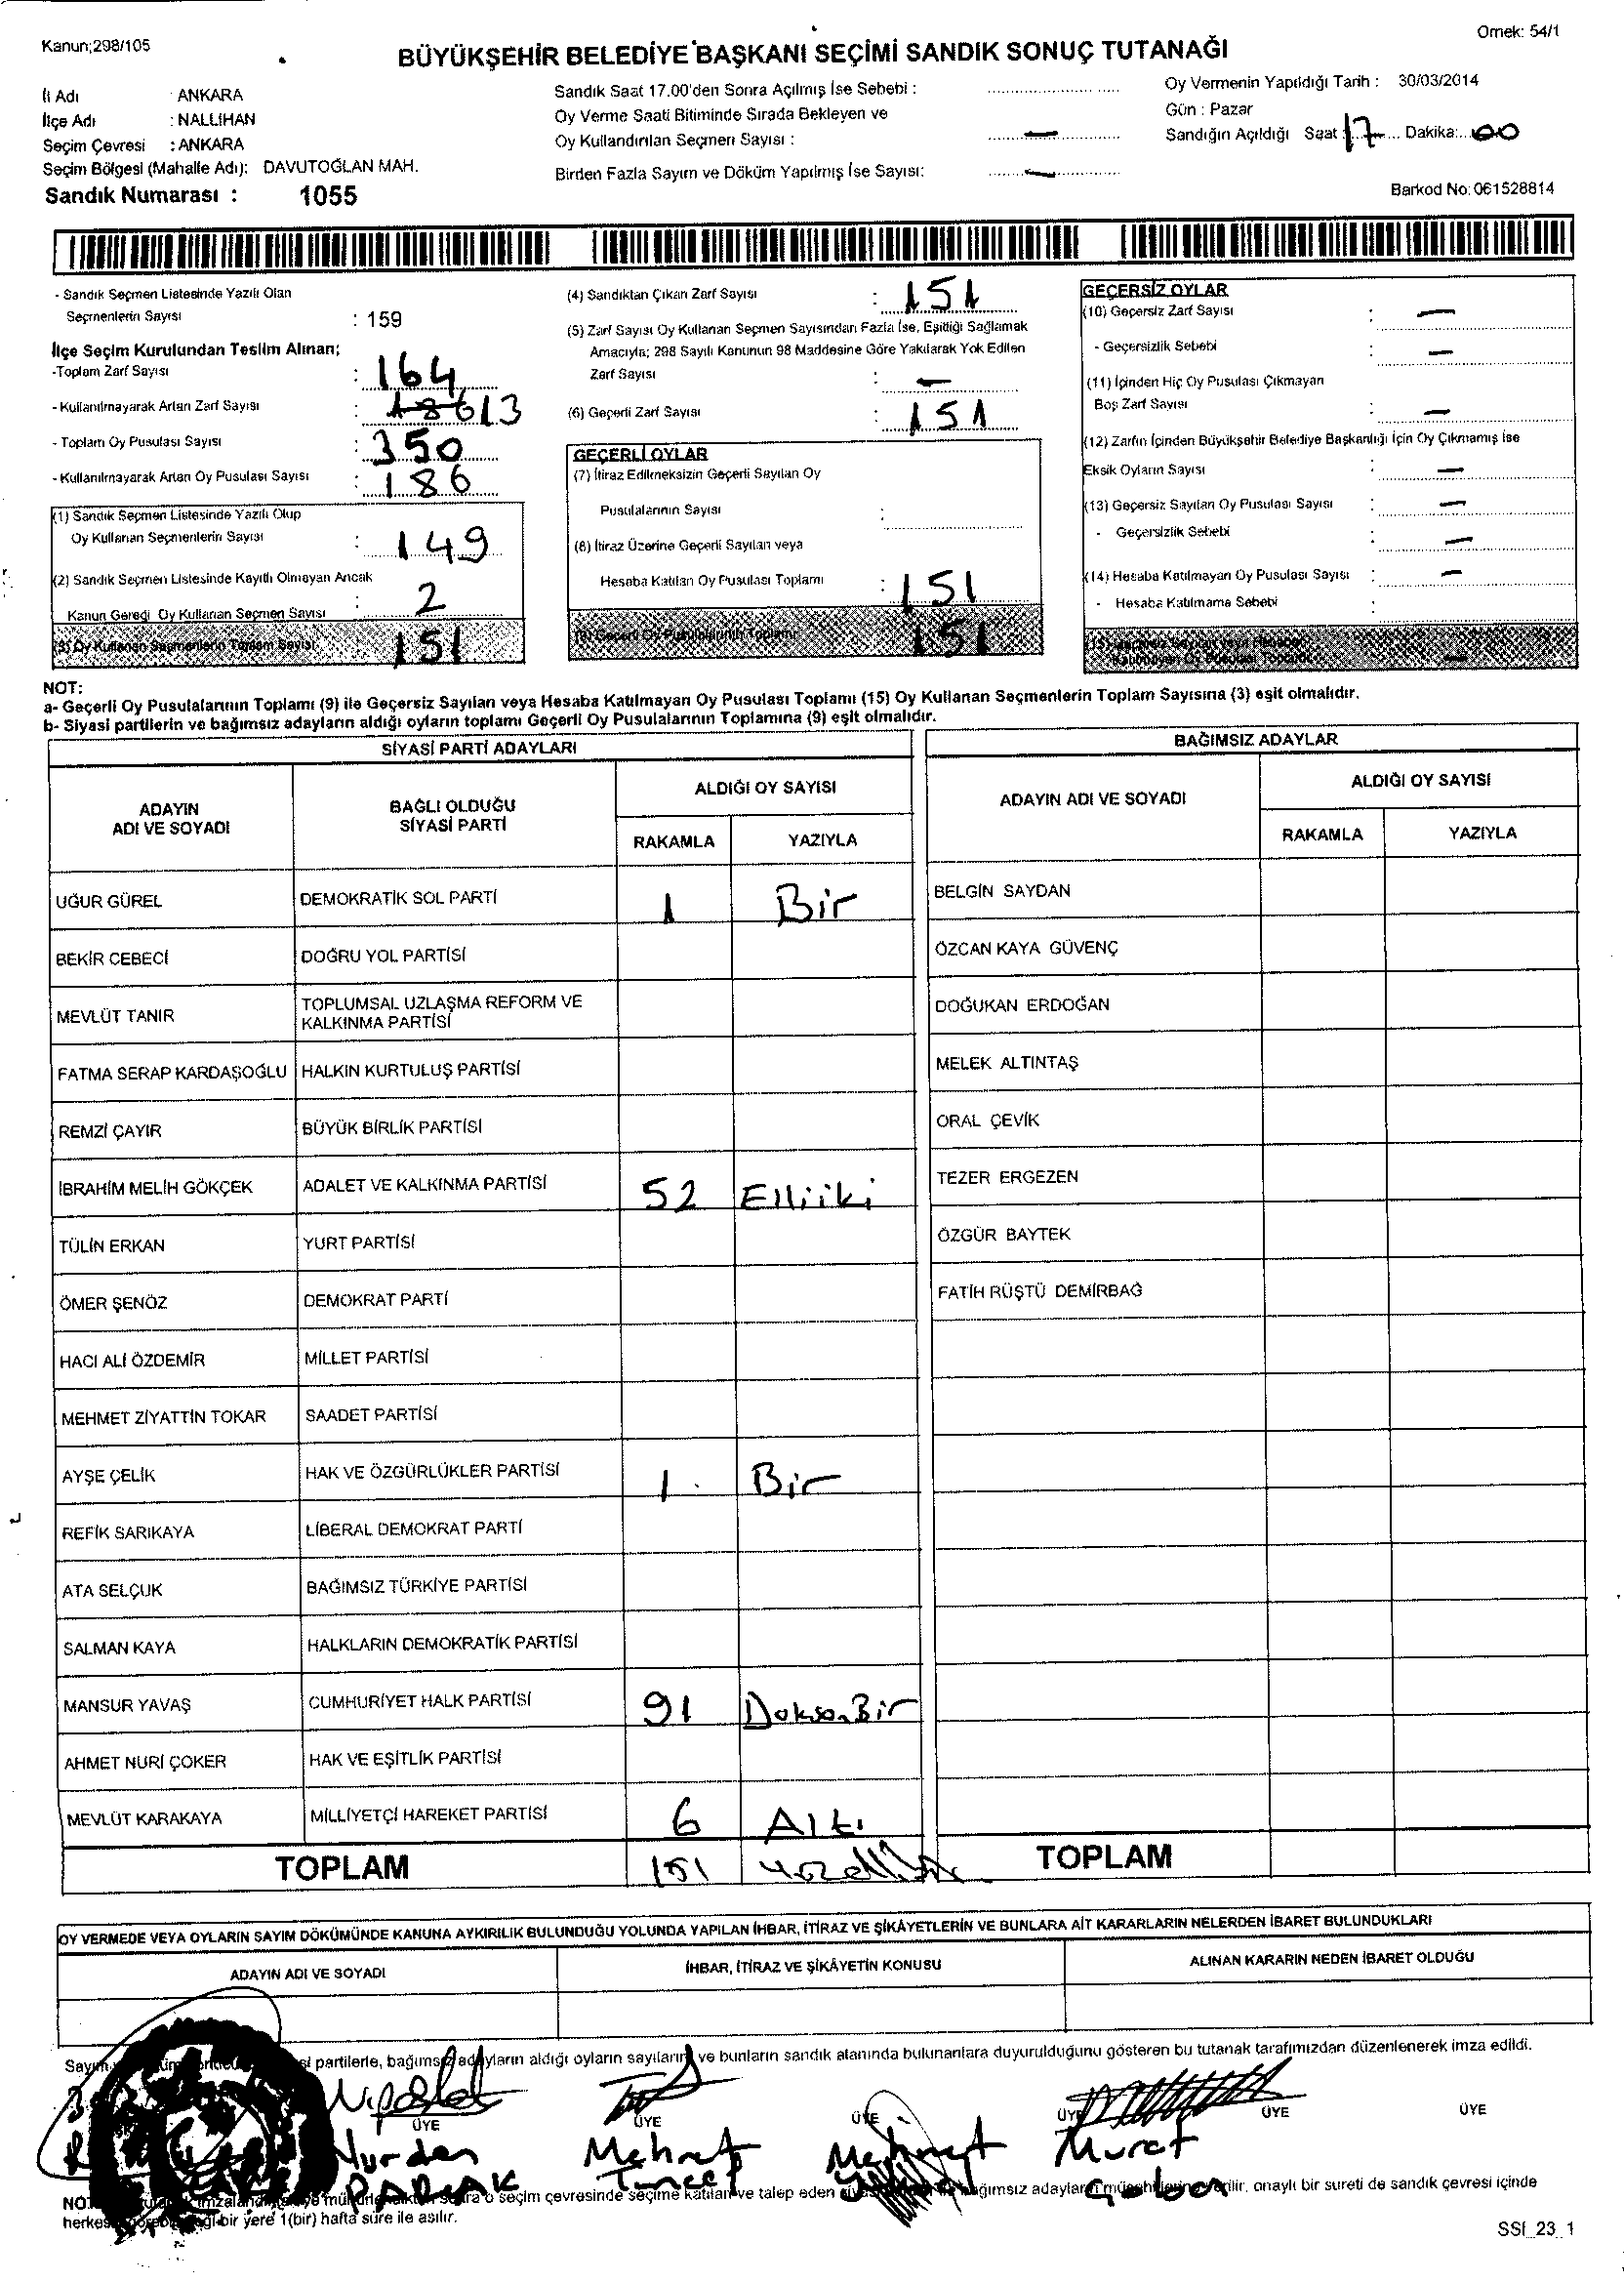 Kanun;298/105
Örnek: 54/1
BÜYÜKŞEHİR BELEDİYE BAŞKANI SEÇİMİ SANDIK SONUÇ TUTANAĞI
İl Adı : ANKARA
İlçe Adı : NALLIHAN
Seçim Çevresi : ANKARA
Seçim Bölgesi (Mahalle Adı): DAVUTOĞLAN MAH.
Sandık Numarası : 1055
Sandık Saat 17.00'den Sonra Açılmış İse Sebebi :
Oy Verme Saati Bitiminde Sırada Bekleyen ve
Oy Kullandırılan Seçmen Sayısı : —
Birden Fazla Sayım ve Döküm Yapılmış İse Sayısı: —
Oy Vermenin Yapıldığı Tarih : 30/03/2014
Gün : Pazar
Sandığın Açıldığı Saat 17 Dakika: 00
Barkod No: 061528814
- Sandık Seçmen Listesinde Yazılı Olan
Seçmenlerin Sayısı : 159
İlçe Seçim Kurulundan Teslim Alınan;
-Toplam Zarf Sayısı : 164
- Kullanılmayarak Artan Zarf Sayısı : 186 13
- Toplam Oy Pusulası Sayısı : 350
- Kullanılmayarak Artan Oy Pusulası Sayısı : 186
(1) Sandık Seçmen Listesinde Yazılı Olup
Oy Kullanan Seçmenlerin Sayısı : 149
(2) Sandık Seçmen Listesinde Kayıtlı Olmayan Ancak
Kanun Gereği Oy Kullanan Seçmen Sayısı : 2
(3) Oy Kullanan Seçmenlerin Toplam Sayısı 151
(4) Sandıktan Çıkan Zarf Sayısı : 151
(5) Zarf Sayısı Oy Kullanan Seçmen Sayısından Fazla İse, Eşitliği Sağlamak
Amacıyla; 298 Sayılı Kanunun 98 Maddesine Göre Yakılarak Yok Edilen
Zarf Sayısı : —
(6) Geçerli Zarf Sayısı : 151
GEÇERLİ OYLAR
(7) İtiraz Edilmeksizin Geçerli Sayılan Oy
Pusulalarının Sayısı :
(8) İtiraz Üzerine Geçerli Sayılan veya
Hesaba Katılan Oy Pusulası Toplamı : 151
(9) Geçerli Oy Pusulalarının Toplamı 151
GEÇERSİZ OYLAR
(10) Geçersiz Zarf Sayısı : —
- Geçersizlik Sebebi : —
(11) İçinden Hiç Oy Pusulası Çıkmayan
Boş Zarf Sayısı : —
(12) Zarfın İçinden Büyükşehir Belediye Başkanlığı İçin Oy Çıkmamış İse
Eksik Oyların Sayısı : —
(13) Geçersiz Sayılan Oy Pusulası Sayısı : —
- Geçersizlik Sebebi : —
(14) Hesaba Katılmayan Oy Pusulası Sayısı : —
- Hesaba Katılmama Sebebi :
(15) Geçersiz Sayılan veya Hesaba
Katılmayan Oy Pusulası Toplamı —
NOT:
a- Geçerli Oy Pusulalarının Toplamı (9) ile Geçersiz Sayılan veya Hesaba Katılmayan Oy Pusulası Toplamı (15) Oy Kullanan Seçmenlerin Toplam Sayısına (3) eşit olmalıdır.
b- Siyasi partilerin ve bağımsız adayların aldığı oyların toplamı Geçerli Oy Pusulalarının Toplamına (9) eşit olmalıdır.
SİYASİ PARTİ ADAYLARI
ADAYIN ADI VE SOYADI
BAĞLI OLDUĞU SİYASİ PARTİ
ALDIĞI OY SAYISI
RAKAMLA YAZIYLA
UĞUR GÜREL DEMOKRATİK SOL PARTİ 1 Bir
BEKİR CEBECİ DOĞRU YOL PARTİSİ
MEVLÜT TANIR TOPLUMSAL UZLAŞMA REFORM VE KALKINMA PARTİSİ
FATMA SERAP KARDAŞOĞLU HALKIN KURTULUŞ PARTİSİ
REMZİ ÇAYIR BÜYÜK BİRLİK PARTİSİ
İBRAHİM MELİH GÖKÇEK ADALET VE KALKINMA PARTİSİ 52 Elliiki
TÜLİN ERKAN YURT PARTİSİ
ÖMER ŞENÖZ DEMOKRAT PARTİ
HACI ALİ ÖZDEMİR MİLLET PARTİSİ
MEHMET ZİYATTİN TOKAR SAADET PARTİSİ
AYŞE ÇELİK HAK VE ÖZGÜRLÜKLER PARTİSİ 1 Bir
REFİK SARIKAYA LİBERAL DEMOKRAT PARTİ
ATA SELÇUK BAĞIMSIZ TÜRKİYE PARTİSİ
SALMAN KAYA HALKLARIN DEMOKRATİK PARTİSİ
MANSUR YAVAŞ CUMHURİYET HALK PARTİSİ 91 DoksanBir
AHMET NURİ ÇOKER HAK VE EŞİTLİK PARTİSİ
MEVLÜT KARAKAYA MİLLİYETÇİ HAREKET PARTİSİ 6 Altı
TOPLAM 151 Yüzellibir
BAĞIMSIZ ADAYLAR
ADAYIN ADI VE SOYADI
ALDIĞI OY SAYISI
RAKAMLA YAZIYLA
BELGİN SAYDAN
ÖZCAN KAYA GÜVENÇ
DOĞUKAN ERDOĞAN
MELEK ALTINTAŞ
ORAL ÇEVİK
TEZER ERGEZEN
ÖZGÜR BAYTEK
FATİH RÜŞTÜ DEMİRBAĞ
TOPLAM
OY VERMEDE VEYA OYLARIN SAYIM DÖKÜMÜNDE KANUNA AYKIRILIK BULUNDUĞU YOLUNDA YAPILAN İHBAR, İTİRAZ VE ŞİKÂYETLERİN VE BUNLARA AİT KARARLARIN NELERDEN İBARET BULUNDUKLARI
ADAYIN ADI VE SOYADI
İHBAR, İTİRAZ VE ŞİKÂYETİN KONUSU
ALINAN KARARIN NEDEN İBARET OLDUĞU
partilerle, bağımsız adayların aldığı oyların sayılarını ve bunların sandık alanında bulunanlara duyurulduğunu gösteren bu tutanak tarafımızdan düzenlenerek imza edildi.
ÜYE ÜYE ÜYE ÜYE ÜYE ÜYE
Nurdan Mehmet Mehmet Murat
PARLAK Tuncer Çoban
seçim çevresinde seçime katılan ve talep eden bağımsız adayların onaylı bir sureti de sandık çevresi içinde
bir yere 1(bir) hafta süre ile asılır.
SSİ_23_1